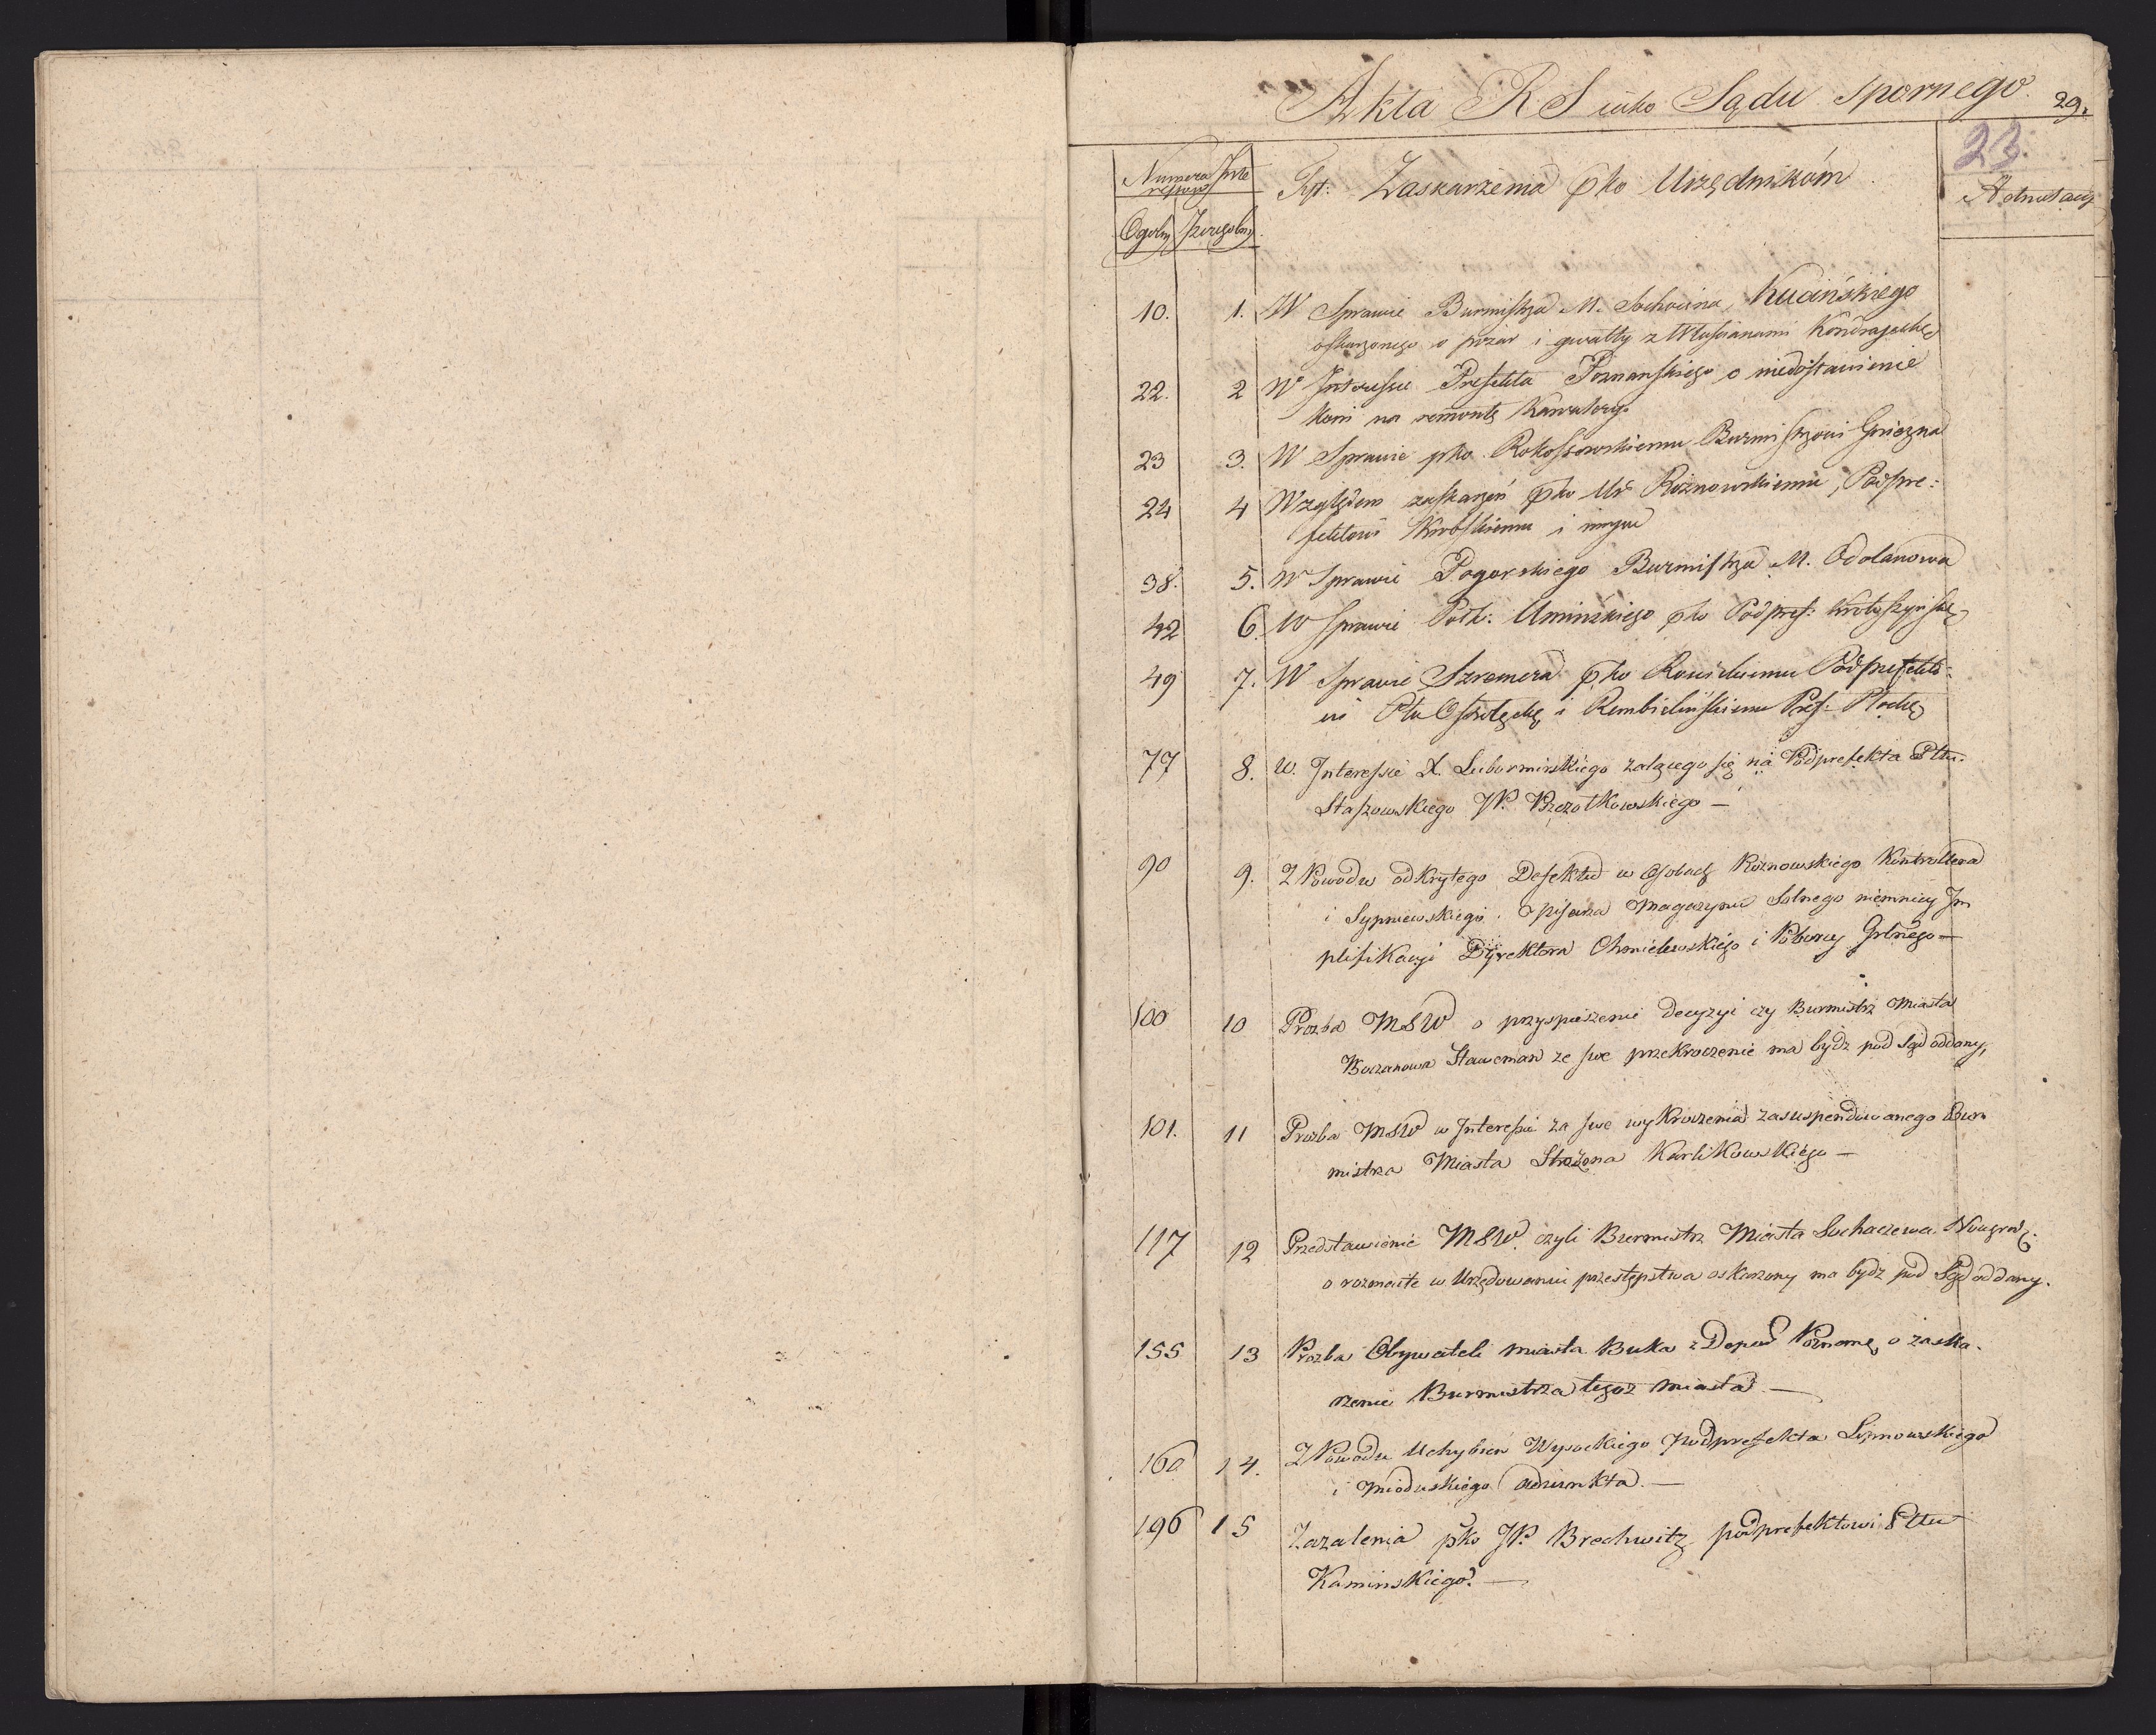 Akta R S jako Sądu Spornego
29.
23.
Numera
Ogolny
Szczegolny
Rpt: Zaskarżenia pko Urzędnikóm
Adnotacye
10. 1. W Sprawie Burmistrza M. Sochocina, Kucińskiego
oskarzonego o pożar i gwałty z Włościanami
22. 2 W Interessie Prefekta Poznanskiego o niedostawienie
koni na remontę Kawaleryi
23 3. W Sprawie pko Rokossowskiemu Burmistrzowi Gniezna
24 4 Względem zaskarzeń pko Ur Rożnowskiemu, Podpre:
fektowi Krobskiemu i innym
38. 5. W Sprawie Pogorskiego Burmistrza M. Odolanowa
42 6. W Sprawie Pułk: Uminskiego pko Podpref:
49 7. W Sprawie Szremera pko Podprefekto:
wi Ptu i Rembielińskiemu Pref:
77 8. W. Interessie X. Lubormirskiego zalącego się na Podprefekta Pttu.
Staszowskiego JP. Brzozotkowskiego —
90 9. Z Powodu odkrytego Defektu w osobach Roznowskiego Kontrollera
i Sypniewskiego Pisarza Magazynu Solnego niemniey Im
plikacyi Dyrektora Chmielewskiego i Poborcy Grlnego —
100 10 Prozba MSW o przyspieszenie decyzyi czy Burmistrz Miasta
ze swe przekroczenie ma bydz pod Sąd oddany,
101. 11 Prozba MSW w Interesie za swe wykroczenia zasuspendowanego Bur
mistrza Miasta Karlikowskiego —
117 12 Przedstawienie MSW. czyli Burmistrz Miasta Sochaczewa
o rozmaite w Urzędowaniu przestępstwa oskarzony ma bydz pod Sąd oddany.
155 13 Prozba Obywateli miasta Buka z Depar o zaska.
rzenie Burmistrza tegoz miasta —
160 14. Z Powodu Uchybien Wysockiego Podprefekta Lipnowskiego
i Mioduskiego Adiunkta. —
196 15 Zazalenia pko JP. Brochwitz podprefektowi Pttu
Kaminskiego. —